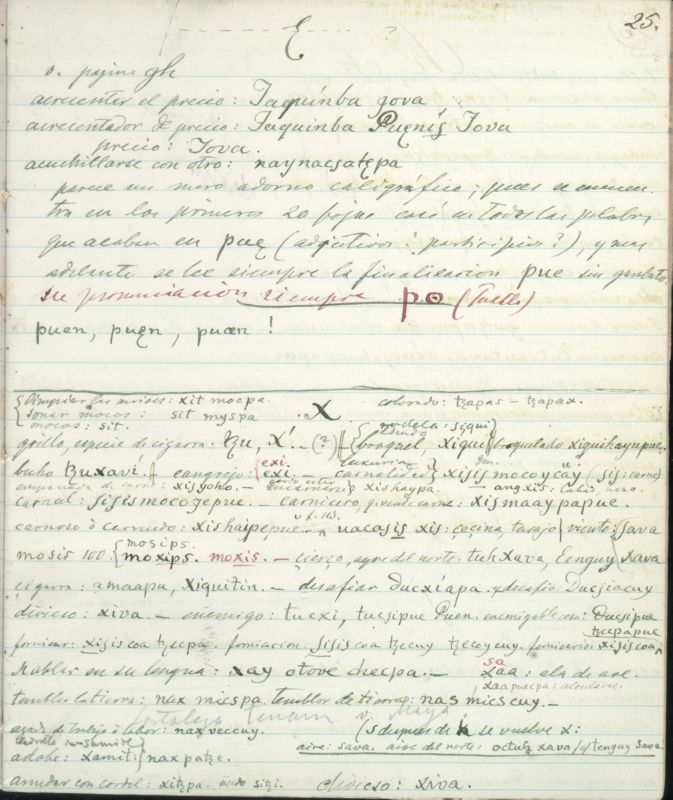 25.
Ę ?
v. pagina gh
acrecentar el precio: Jaquínba gova
acrecentador de precio: Jaquinba Puęnis Jova
precio: Jova.
acuchillarse con otro: naynacsatępa
parece un mero adorno caligráfico; pues se encuen-
tra en los primeros 20 fojas casi en todas las palabras
que acaban en puę (adjetivos? participios?), y mas
adelante se lee siempre la finalizacion pue sin garabato.
su pronunciación siempre pɵ
puen, puęn, puæn!
limpiar las narices: xit mocpa.
sonar mocos: sit myspa
mocos: sit.
X
colorado: tzapas - tzapax.
rodela: siqui
grillo, especie de cigarra: tzu, X! - (?) broquel, xiqui broquelado xiquihayupue.
buho tzuxaví. cangrejo: exi. exi. - carnal xisis mocoycäy (sis: carne)
empanada de carne: xisyoho. - xishaypa. - angxis: labio,
carnal: sisismocogepue. - carnicero, : xismaaypapue.
carnoso ò carnudo: xishaipepue - uacasis xis: cecina, tasajo viento: sava
mosis 100: mosips. moxips. moxis. - cierzo, ayre del norte. tuh xava, tenguy xava
cigarra: amaapu, xiquitin. - desafiar ducxiapa. desafio: Ducsiacuy
divieso: xiva. - enemigo: tucxi, tucsipue Puen. enemigable cosa: Ducsipue
tzecpapue
fornicar: xisis coa tzecpa. fornicacion: sisis coa tzecuy tzecoycuy. fornicario: xisis coa
Hablar en su lengua: xay otove checpa. - xaa: ala de ave.
sa
xaa puecpa: aletear.
temblar la tierra: nax micspa. Temblor de tierra: nas mics cuy. -
fortaleza tenam v. Maya!
azada de trabajo ò labor: nax veccuy. (s despues de h se vuelve x:
aire: sava. aire del norte: octutz xava / tenguy sava.
adobe: xamit: nax patze.
anudar con cordel: xitzpa. nudo sitzi. divieso: xiva.